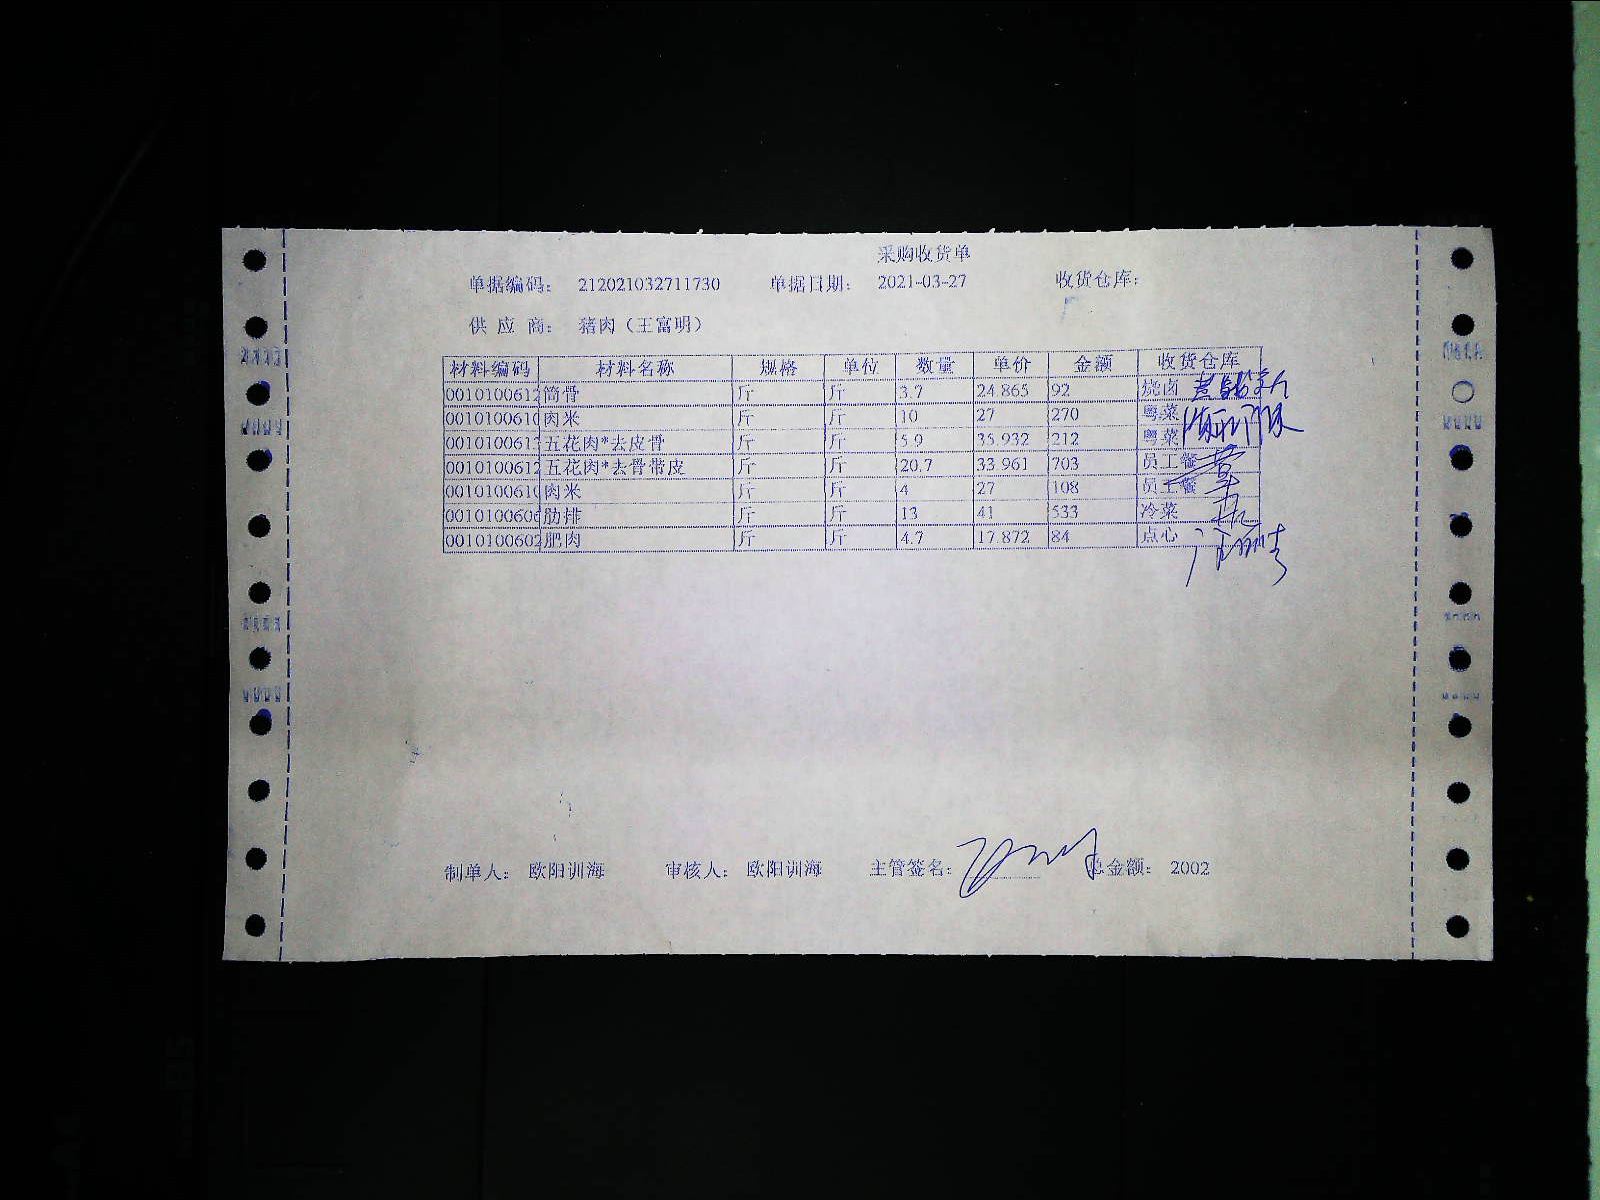 采购收货单
单据编码: 212021032711730 单据日期: 2021-03-27 收货仓库:
供 应 商: 猪肉（王富明）
材料编码 材料名称 规格 单位 数量 单价 金额 收货仓库
0010100612 筒骨 斤 斤 3.7 24.865 92 烧卤
0010100610 肉米 斤 斤 10 27 270 粤菜
001010061 五花肉*去皮骨 斤 斤 5.9 35.932 212 粤菜
0010100612 五花肉*去骨带皮 斤 斤 20.7 33.961 703 员工餐
0010100610 肉米 斤 斤 4 27 108 员工餐
0010100606 肋排 斤 斤 13 41 533 冷菜
0010100602 肥肉 斤 斤 4.7 17.872 84 点心
制单人: 欧阳训海 审核人: 欧阳训海 主管签名: 总金额: 2002